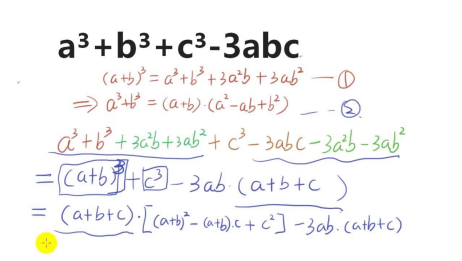 a³+b³+c³-3abc
(a+b)³ = a³+b³+3a²b+3ab² — ①
⇒ a³+b³ = (a+b)·(a²-ab+b²) — ②
a³+b³+3a²b+3ab²+c³-3abc-3a²b-3ab²
= (a+b)³+c³-3ab·(a+b+c)
= (a+b+c)·[(a+b)²-(a+b)·c+c²]-3ab·(a+b+c)